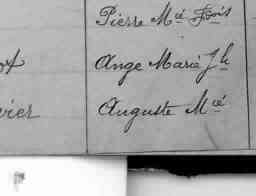 Pierre Mie Fois
Ange Marie Jh
vier Auguste Mie